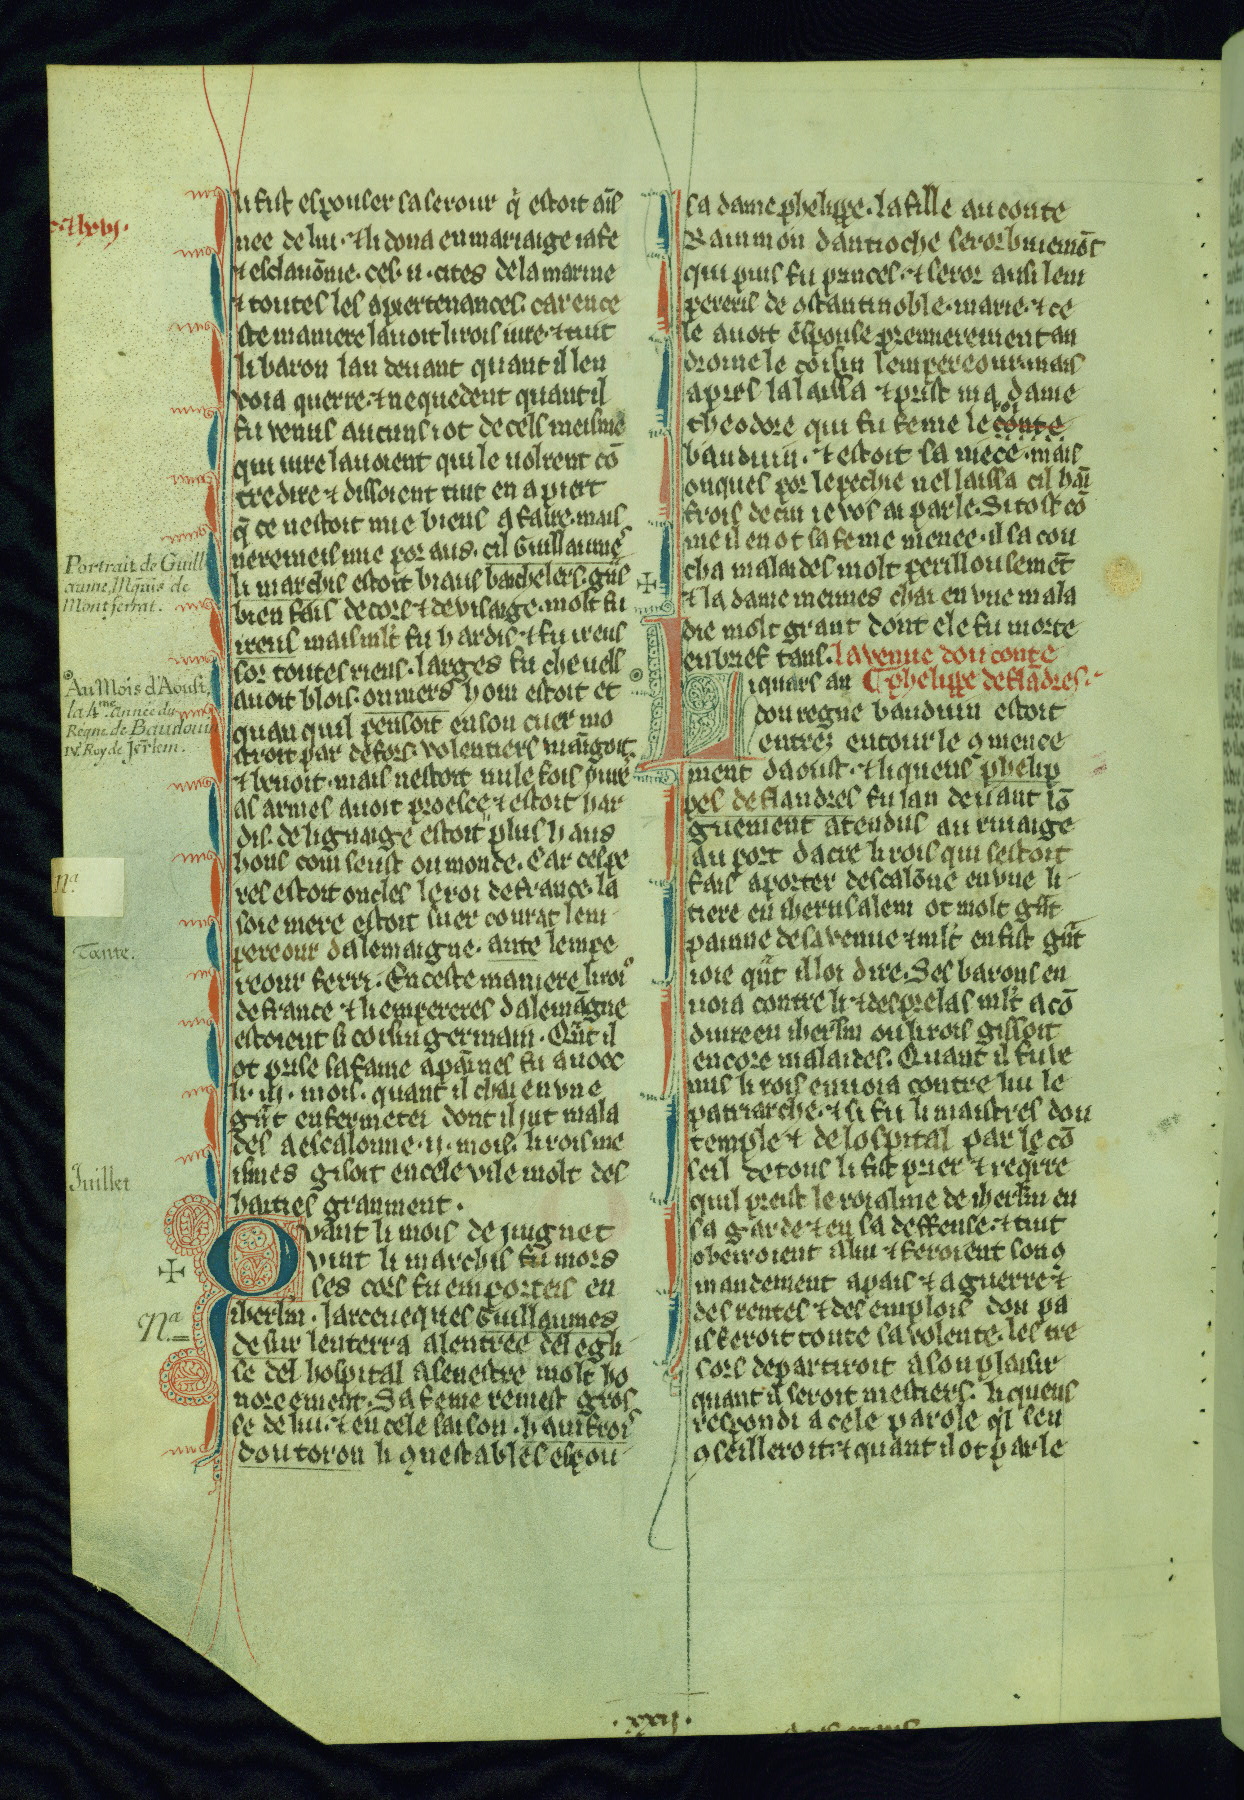 li fist espouser la serour q̃ estoit ais
nee de lui. ⁊ li dona en mariaige iafe
⁊ esclauõnie. ces .ii. cites de la marine
⁊ toutes les apiertenances. car en ce
ste maniere lauoit li rois iure. ⁊ tuit
li baron lan deuant quant il len
uoia querre. ⁊ ne quedent quant il
fu venus aucuns i ot de cels meisme
qui iure lauoient qui le uolrent cõ
tredire ⁊ dissoient tuit en apiert
q̃ ce nestoit mie biens a faire. mais
cil Guillaume
li marchis estoit biaus bachelers. gñs
bien fais de cors ⁊ de visaige. molt fu
ireus mais mlt fu hardis. ⁊ fu ireus
sor toutes riens. larges fu cheuels
auoit blois. ouuers hom estoit et
quanquil pensoit en son cuer mo
stroit par defors. volentiers mãgoit
⁊ beuoit. mais nestoit nule fois yure
as armes auoit proesce ⁊ estoit har
dis. de lignaige estoit plus haus
hons com seust ou monde. Car ces pe
res estoit oncles le roi de france. la
soie mere estoit suer courat lem
pereour dalemaigne. ante lempe
reour ferri. En ceste maniere li roi
de france ⁊ li empereres dalemãgne
estoient si coisin germain. Qũt il
ot prise sa fame a painnes fu auoec
li .iii. mois. quant il chai en vne
grãt enfermetei dont il iut mala
des a escalonne .ii. mois. li rois me
ismes gisoit en cele vile molt des
haities granment.
Quant li mois de iungnet
vint li marchis fu mors
ses cors fu emporteis en
iherl̃m. larceueques Guillaumes
de sur lenterra a lentree del egli
se del hospital a senestre molt ho
noreement. Sa feme remest gros
se de lui. ⁊ en cele saison. hainfroi
dou toron li 9nestables espou
sa dame phelippe. la fille au conte
Raimmon dantioche seror buiemõt
qui puis fu princes. ⁊ seror ausi lem
pereris de 9stantinoble. marie. ⁊ ce
le auoit espouse premierement an
droine le coisin lempereour. mais
apres la laissa ⁊ prist ma dame
theodore qui fu feme le conte roi
bauduin. ⁊ estoit sa niece. mais
onques por le pechie nel laissa cil hai
frois de cui ie vos ai parle. Si tost cõ
me il en ot sa feme menee. il sa cou
cha malaides molt perillousemẽt
⁊ la dame meimes chai en vne mala
die molt grant dont ele fu morte
en brief tans. La venue dou conte
Phelippe de fladres.
Li quars an
dou regne bauduin estoit
entrez entour le 9mence
ment daoust. ⁊ li quens phelip
pes de flandres fu lan deuant lõ
guement atendus au riuaige
au port dacre li rois qui sestoit
fais aporter descalõne en vne li
tiere en iherusalem ot molt grãt
de sa venue ⁊ mlt en fist grãt
ioie qũt il loi dire. Ses barons en
uoia contre li ⁊ des prelas mlt a cõ
duire en iherl̃m ou li rois gissoit
encore malaides. Quant il fu ve
nus li rois enuoia contre lui le
patriarche. ⁊ si fu li maistres dou
temple ⁊ de lospital par le cõ
seil de tous li fist prier ⁊ reqrre
quil preist le roialme de iherl̃m en
sa garde ⁊ en sa deffense. ⁊ tuit
obeiroient a lui ⁊ feroient son 9
mandement a pais ⁊ a guerre ⁊
des rentes ⁊ des emplois dou pa
is feroit toute sa volente. les tre
sors departiroit a son plaisir
quant il seroit mestiers. li quens
respondi a cele parole q̃l sen
9seilleroit. ⁊ quant il ot parle
Portrait de Guill
aume, Mquis de
Montferrat.
Au Mois d'Aoust,
la 4.me année du
Regne de Baudouin
IV. Roy de Jsr̃lem.
Na
Tante.
Juillet
Na
.xxxi.